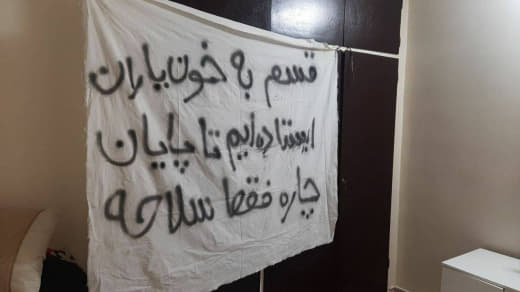 قسم به خون یاران
ایستاده ایم تا پایان
چاره فقط سلاحه